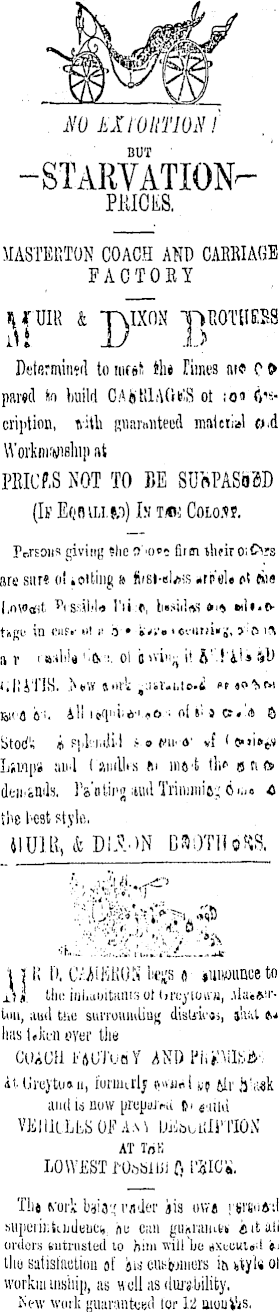 NO EXTORTION!
BUT
—STARVATION—
PRICES.
MASTERTON COACH AND CARRIAGE
FACTORY
MUIR & DIXON BROTHERS
Determined to meet the Times are
pared to build CARRIAGES of
cription, with guaranteed material and
Workmanship at
PRICES NOT TO BE SURPASSED
(IF EQUALLED) IN THE COLONY.
Persons giving the above firm their orders
are sure of getting a first-class article at the
Lowest Possible Price, besides
in case of
of having it
GRATIS. New work guaranteed
All
Stock a splendid of Carriage
Lamps and Candles to meet the
demands. Painting and Trimming done
the best style.
MUIR, & DIXON BROTHERS.
MR D. CAMERON begs to announce to
the inhabitants of Greytown, Master-
ton, and the surrounding districts, that
has taken over the
COACH FACTORY AND PREMISES
At Greytown, formerly owned by Mr
and is now prepared to build
VEHICLES OF ANY DESCRIPTION
AT THE
LOWEST POSSIBLE PRICE.
The work being under his own personal
superintendence, he can guarantee that all
orders entrusted to him will be executed to
the satisfaction of his customers in style of
workmanship, as well as durability.
New work guaranteed for 12 months.